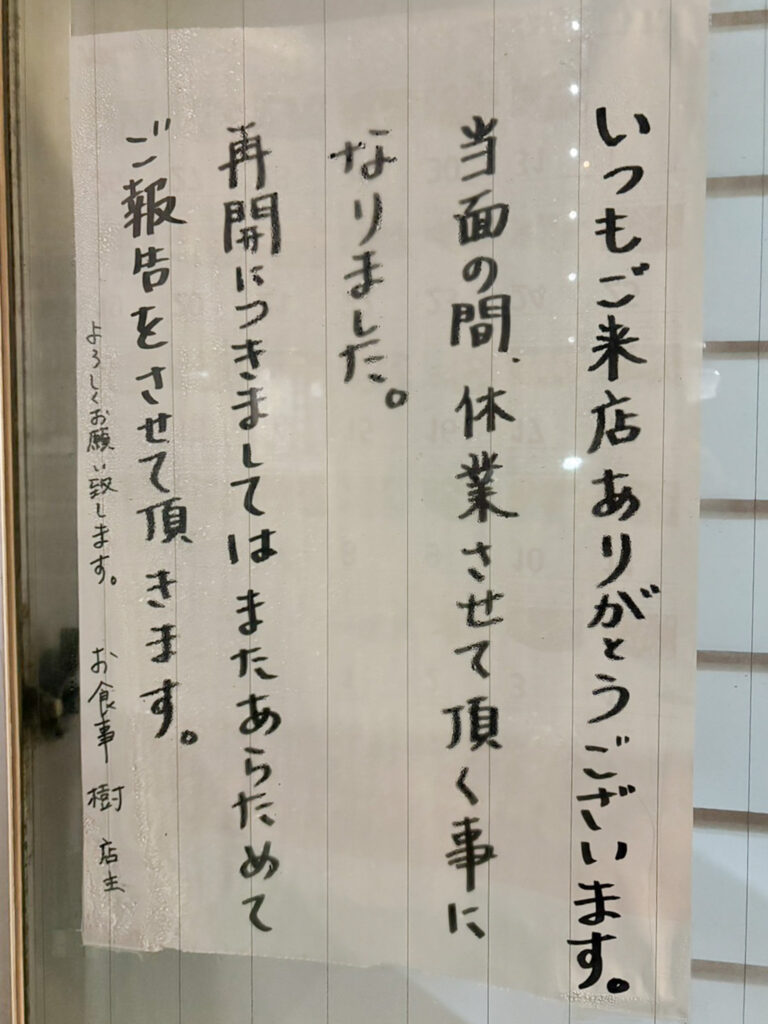 いつもご来店ありがとうございます。
当面の間、休業させて頂く事に
なりました。
再開につきましてはまたあらためて
ご報告をさせて頂きます。
よろしくお願い致します。 お食事 樹 店主